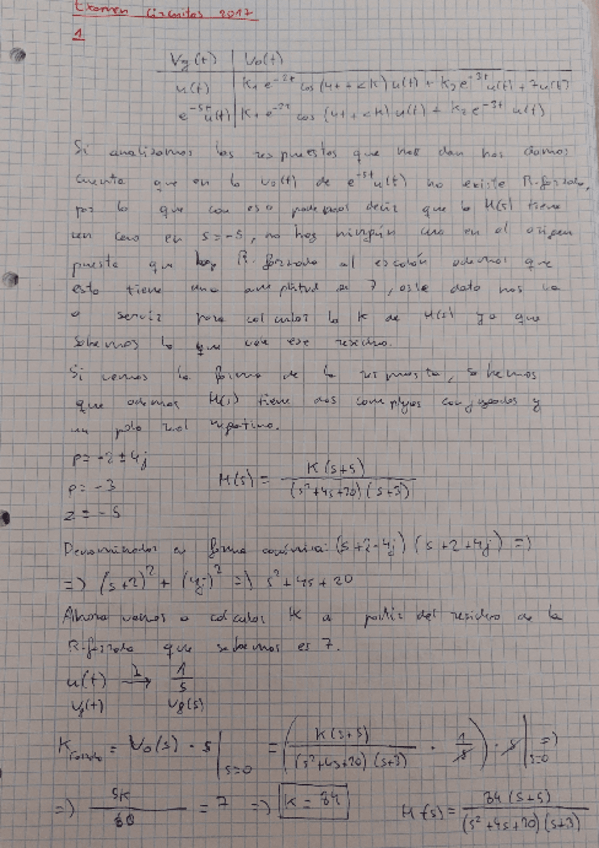 Examen Circuitos 2017
1
Vg(t) | Vo(t)
u(t) | K₁ e^-2t cos(4t + <K) u(t) + K₂ e^-3t u(t) + 7u(t)
e^-5t u(t) | K₁ e^-2t cos(4t + <K) u(t) + K₂ e^-3t u(t)
Si analizamos las respuestas que nos dan nos damos
cuenta que en la vo(t) de e^-5t u(t) no existe R.forzada,
por lo que con eso podemos decir que la H(s) tiene
un cero en s=-5, no hay ningún cero en el origen
puesto que hay R.forzada al escalón ademas que
esta tiene una amplitud de 7, este dato nos va
a servir para calcular la K de H(s) ya que
sabemos lo que vale ese residuo.
Si vemos la forma de la respuesta, sabemos
que ademas H(s) tiene dos complejos conjugados y
un polo real negativo.
p = -2 ± 4j
p = -3
z = -5
H(s) = K(s+5) / (s²+4s+20)(s+3)
Denominador en forma canónica: (s+2-4j)(s+2+4j) =>
=> (s+2)² + (4j)² => s²+4s+20
Ahora vamos a calcular K a partir del residuo de la
R.forzada que sabemos es 7.
u(t) → 1/s
Vg(t) Vg(s)
K forzada = Vo(s) · s |s=0 = (K(s+5) / (s²+4s+20)(s+3) · 1/s) · s |s=0 =>
=> 5K / 60 = 7 => K = 84
H(s) = 84(s+5) / (s²+4s+20)(s+3)